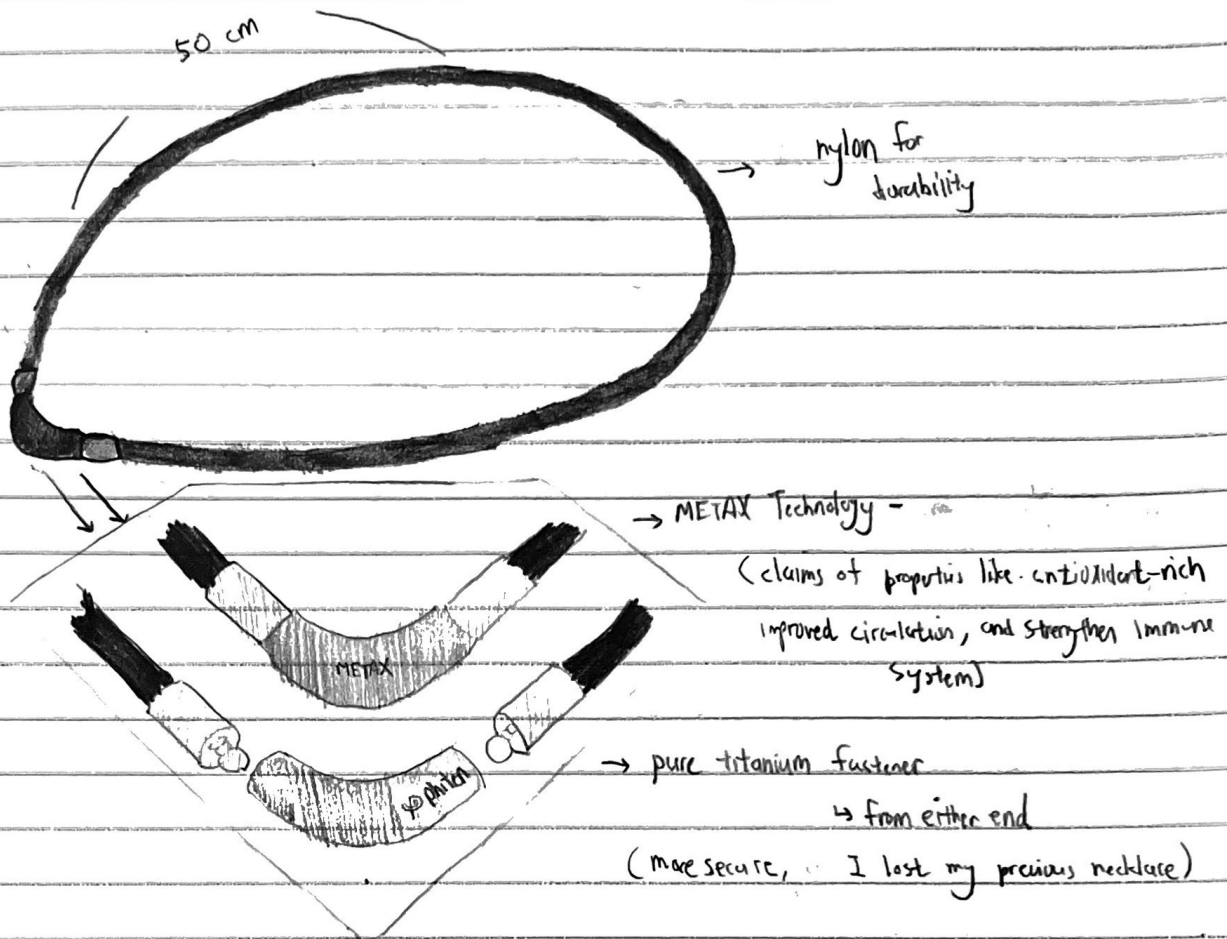 50 cm
→ nylon for
durability
→ METAX Technology -
(claims of properties like antioxidant-rich
improved circulation, and strengthen immune
system)
METAX
φ phiten
→ pure titanium fastener
↳ from either end
(more secure, I lost my previous necklace)